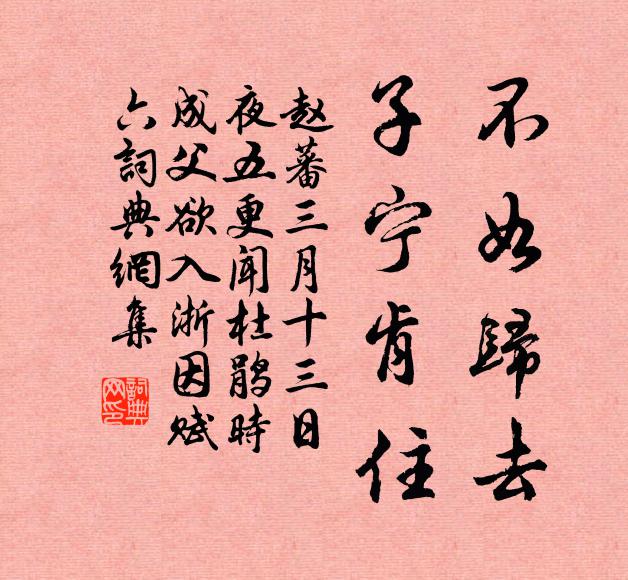 不如歸去
子宁肯住
赵蕃三月十三日
夜五更闻杜鹃時
成父欲入浙因赋
六詞典網集
詞典
网印